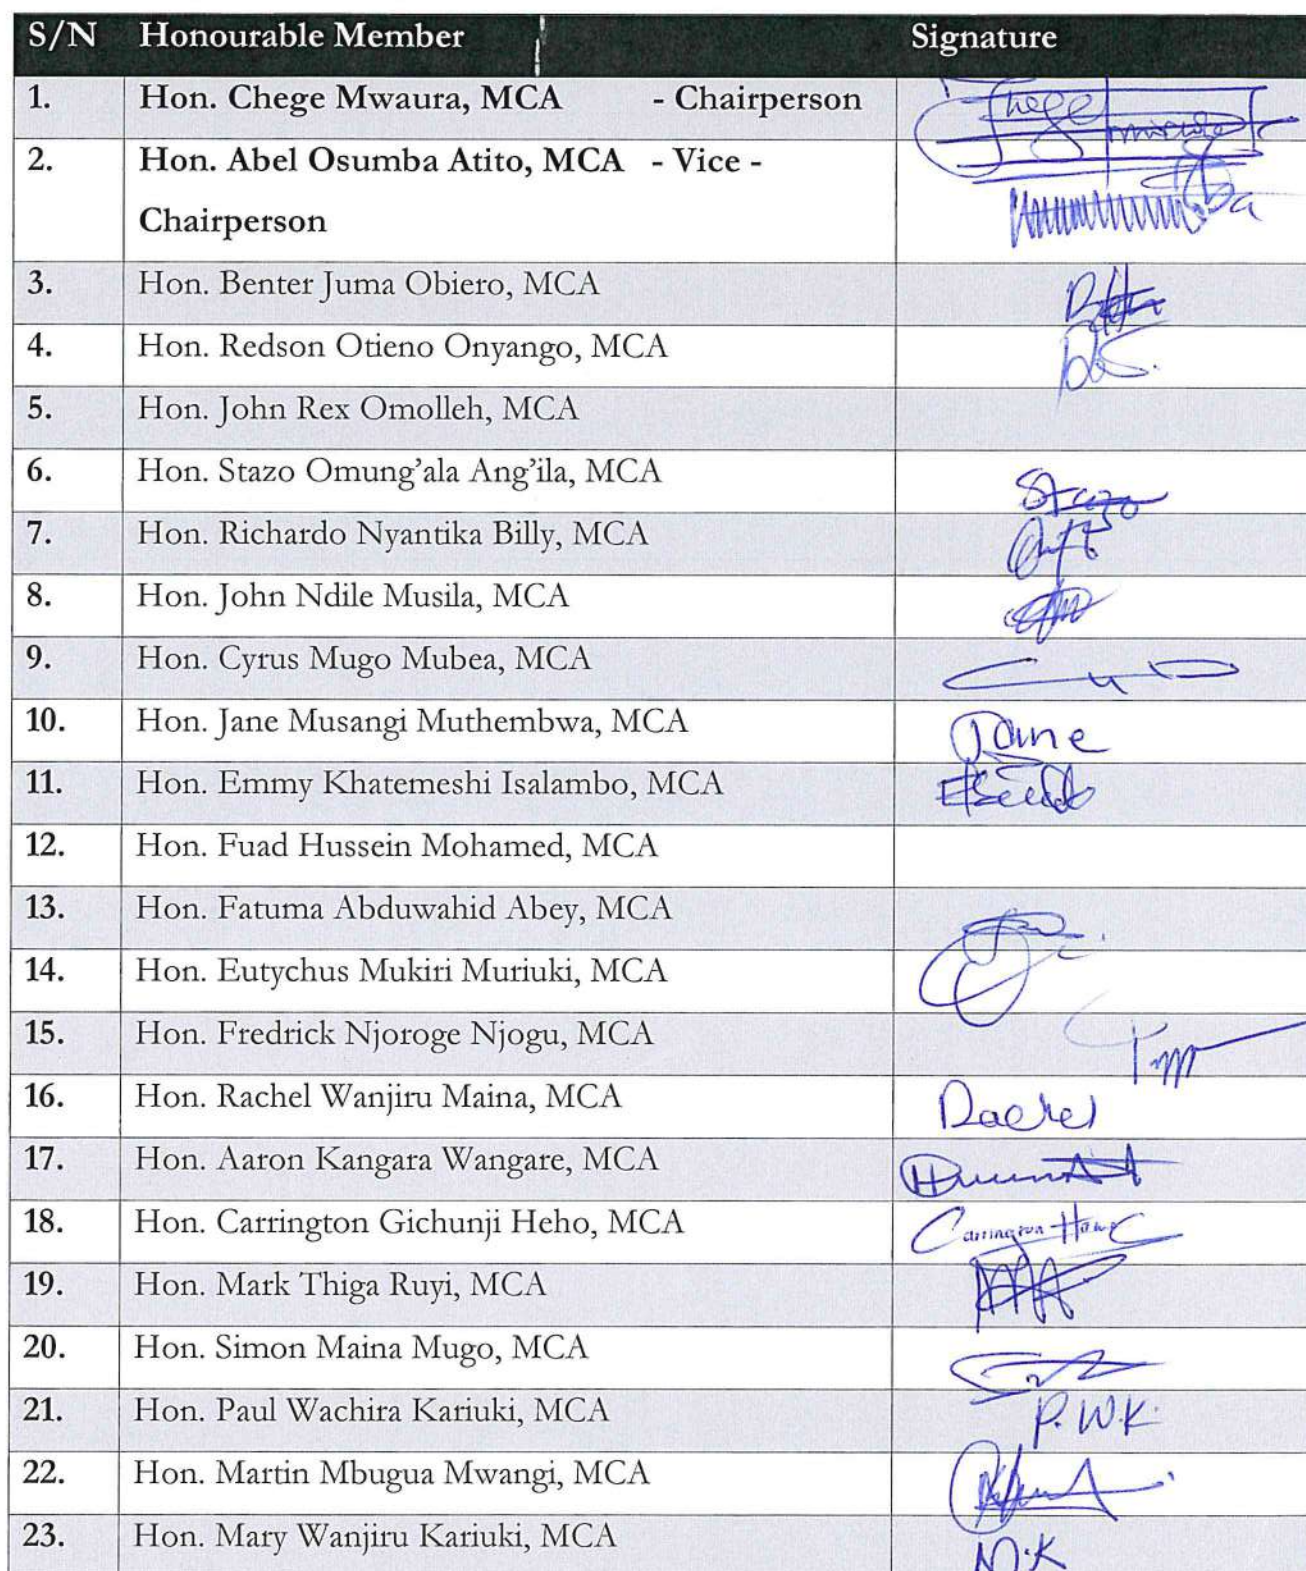 S/N Honourable Member Signature
1. Hon. Chege Mwaura, MCA - Chairperson Chege
2. Hon. Abel Osumba Atito, MCA - Vice -
Chairperson
3. Hon. Benter Juma Obiero, MCA
4. Hon. Redson Otieno Onyango, MCA
5. Hon. John Rex Omolleh, MCA
6. Hon. Stazo Omung'ala Ang'ila, MCA Stazo
7. Hon. Richardo Nyantika Billy, MCA
8. Hon. John Ndile Musila, MCA
9. Hon. Cyrus Mugo Mubea, MCA
10. Hon. Jane Musangi Muthembwa, MCA Jane
11. Hon. Emmy Khatemeshi Isalambo, MCA
12. Hon. Fuad Hussein Mohamed, MCA
13. Hon. Fatuma Abduwahid Abey, MCA
14. Hon. Eutychus Mukiri Muriuki, MCA
15. Hon. Fredrick Njoroge Njogu, MCA
16. Hon. Rachel Wanjiru Maina, MCA Rachel
17. Hon. Aaron Kangara Wangare, MCA
18. Hon. Carrington Gichunji Heho, MCA Carrington
19. Hon. Mark Thiga Ruyi, MCA
20. Hon. Simon Maina Mugo, MCA
21. Hon. Paul Wachira Kariuki, MCA P.W.K.
22. Hon. Martin Mbugua Mwangi, MCA
23. Hon. Mary Wanjiru Kariuki, MCA M.K